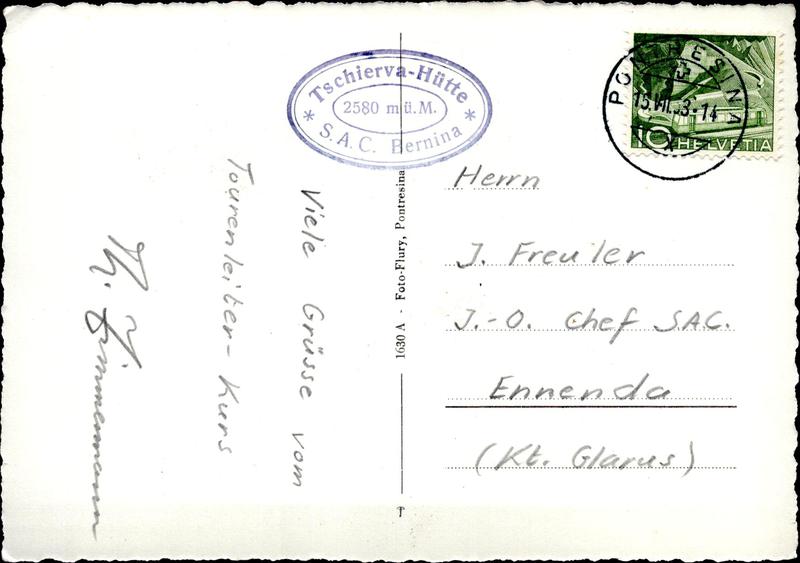 Tschierva-Hütte
2580 m ü.M.
* S.A.C. Bernina *
PONTRESINA
10 HELVETIA
Viele Grüsse vom
Tourenleiter-Kurs
Zimmermann
1630 A - Foto-Flury, Pontresina
Herrn
J. Freuler
J.-O. Chef SAC.
Ennenda
(Kt. Glarus)